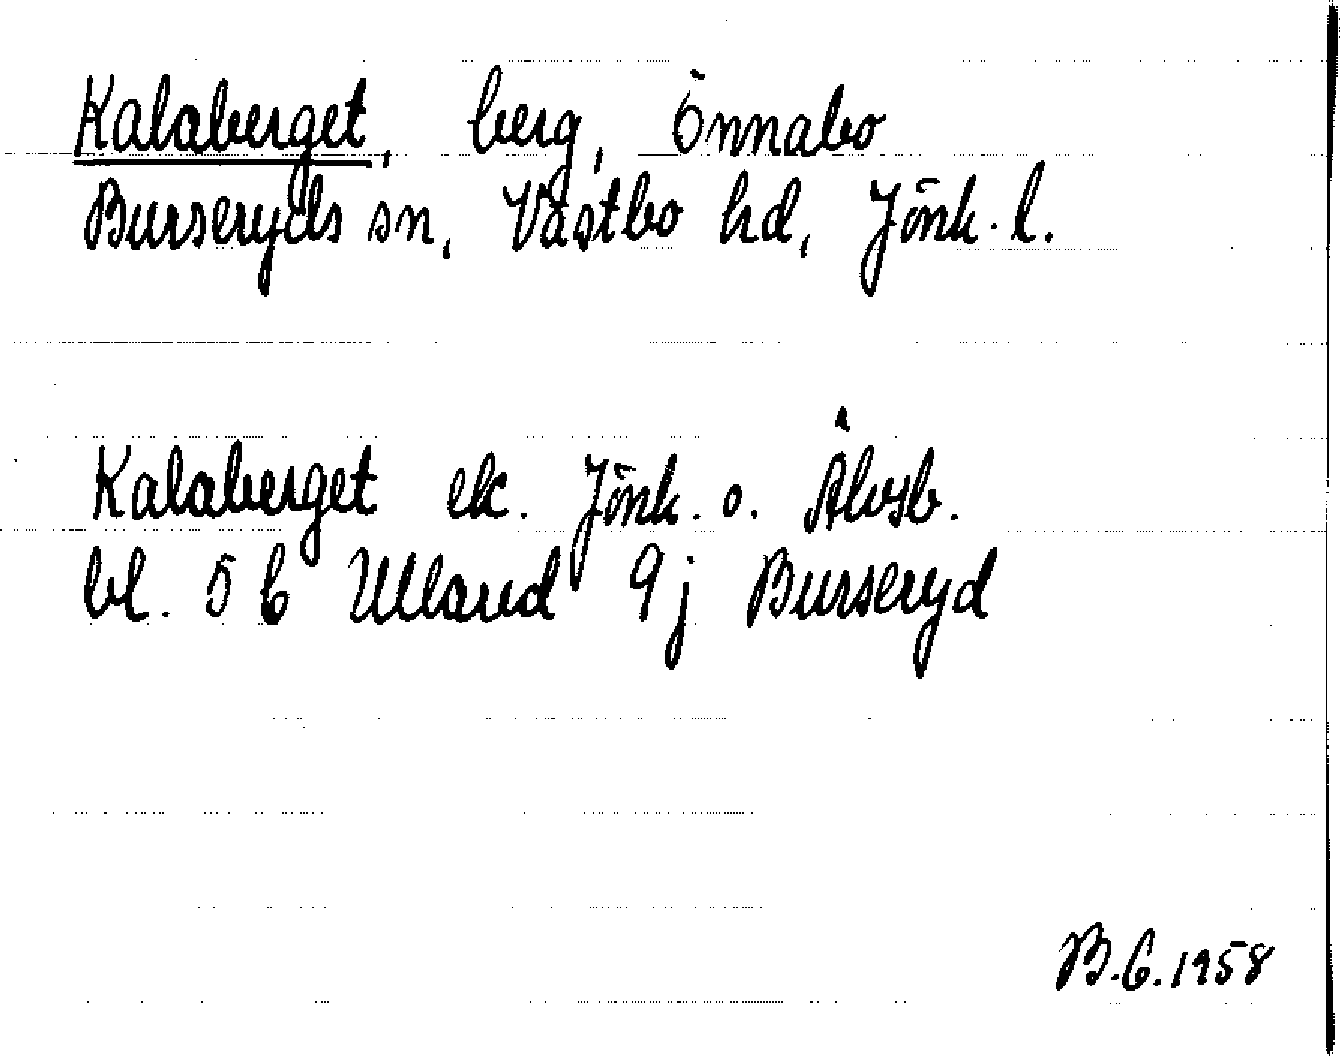 Kalaberget, berg, Önnabo
Burseryds sn, Västbo hd, Jönk. l.
Kalaberget ek. Jönk. o. Älvsb.
bl. 5 6 Ullared 9 j Burseryd
B.G. 1958